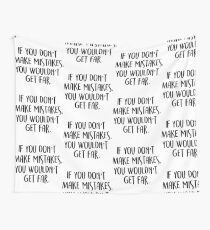 IF YOU DON'T
MAKE MISTAKES,
YOU WOULDN'T
GET FAR.
IF YOU DON'T
MAKE MISTAKES,
YOU WOULDN'T
GET FAR.
IF YOU DON'T
MAKE MISTAKES,
YOU WOULDN'T
GET FAR.
IF YOU DON'T
MAKE MISTAKES,
YOU WOULDN'T
GET FAR.
IF YOU DON'T
MAKE MISTAKES,
YOU WOULDN'T
GET FAR.
IF YOU DON'T
MAKE MISTAKES,
YOU WOULDN'T
GET FAR.